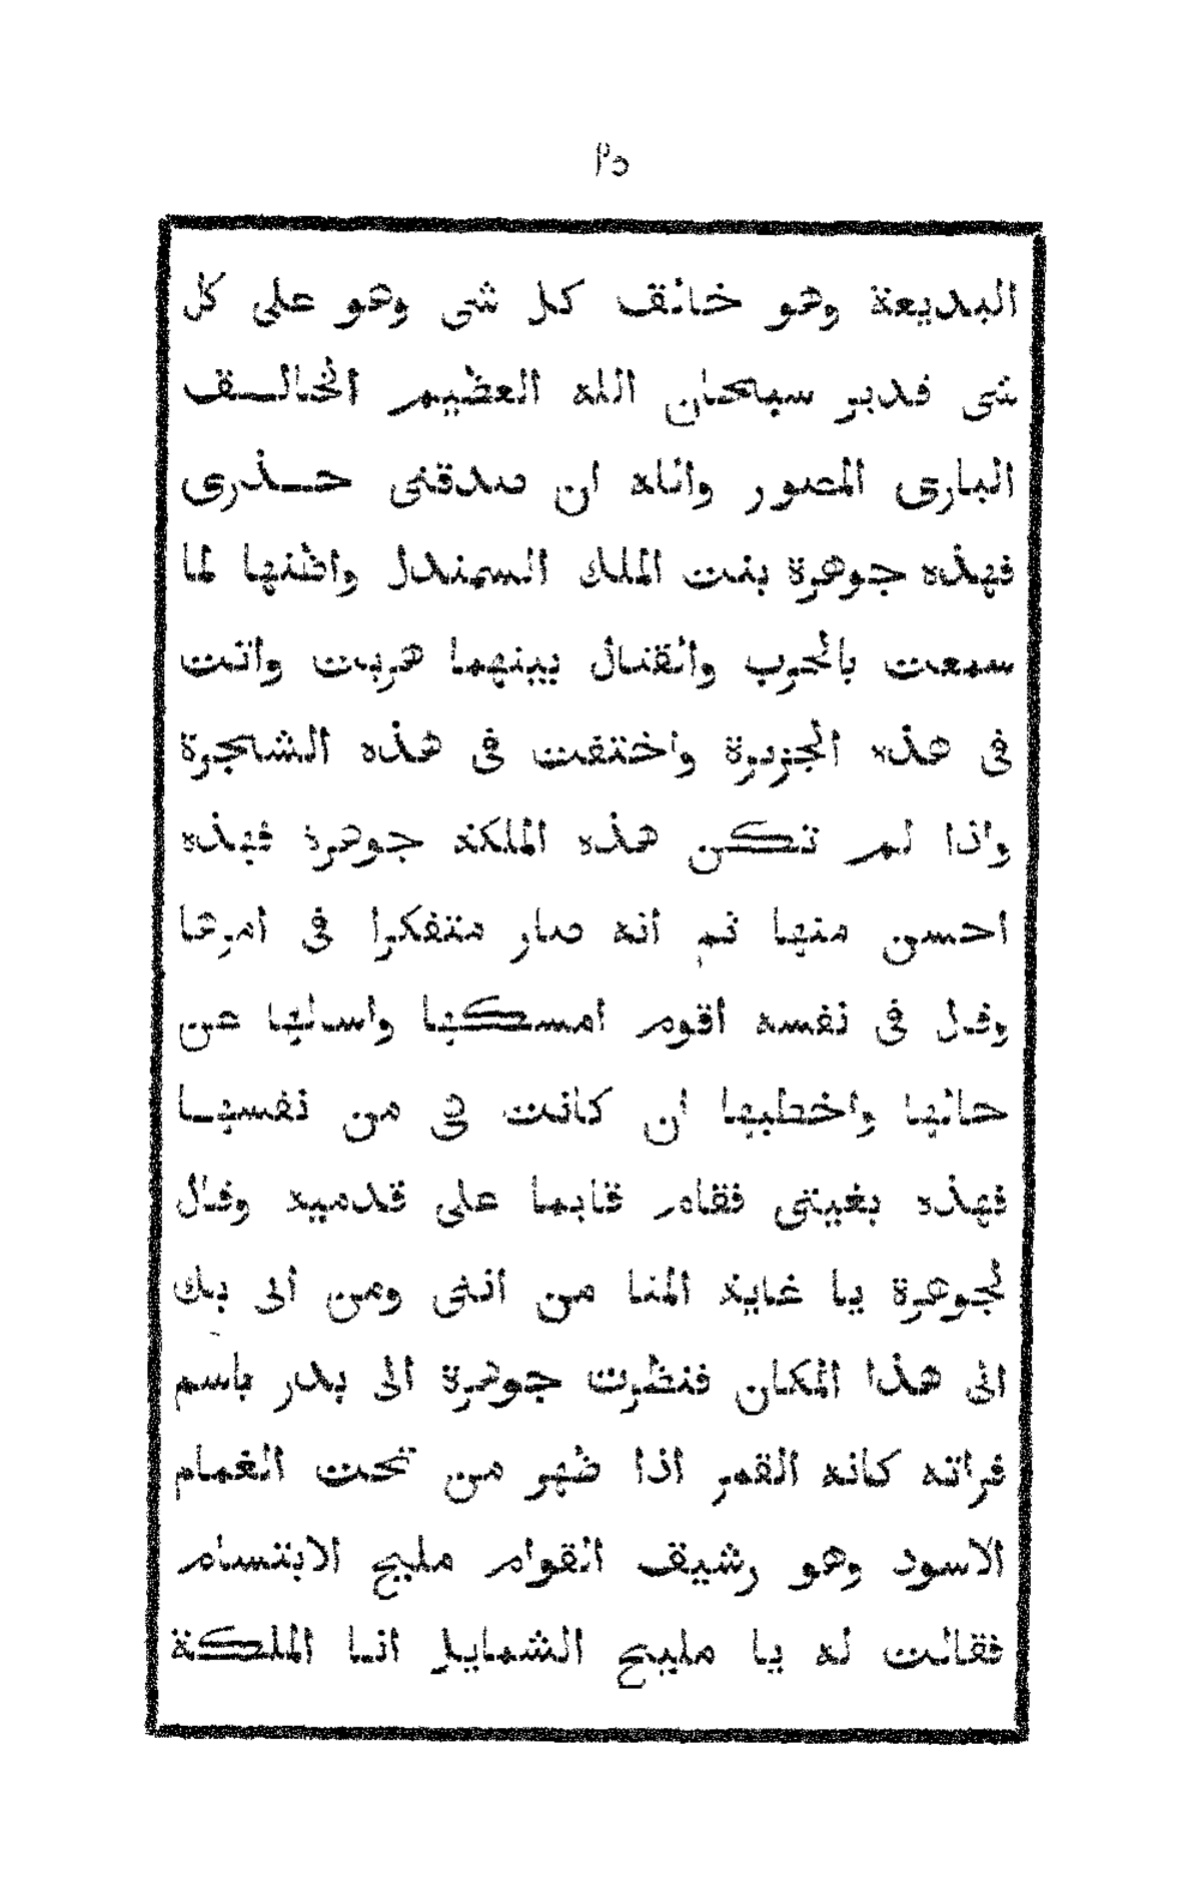 ٣٥
البديعة وهو خالق كل شى وهو على كل
شى قدير سبحان الله العظيم الخالـــق
البارى المصور والله ان صدقنى حـــذرى
فهذه جوهرة بنت الملك السمندل واظنها لما
سمعت بالحرب والقتال بينهما هربت واتت
فى هذه الجزيرة واختفت فى هذه الشجرة
واذا لم تكن هذه الملكة جوهرة فهذه
احسن منها ثم انه صار متفكرا فى امرها
وقال فى نفسه اقوم امسكها واسالها عن
حالها واخطبها ان كانت هى من نفسهـا
فهذه بغيتى فقام قايما على قدميه وقال
لجوهرة يا غاية المنا من انتى ومن اتى بك
الى هذا المكان فنظرت جوهرة الى بدر باسم
فراته كانه القمر اذا ظهر من تحت الغمام
الاسود وهو رشيق القوام مليح الابتسام
فقالت له يا مليح الشمايل انـا الملكة